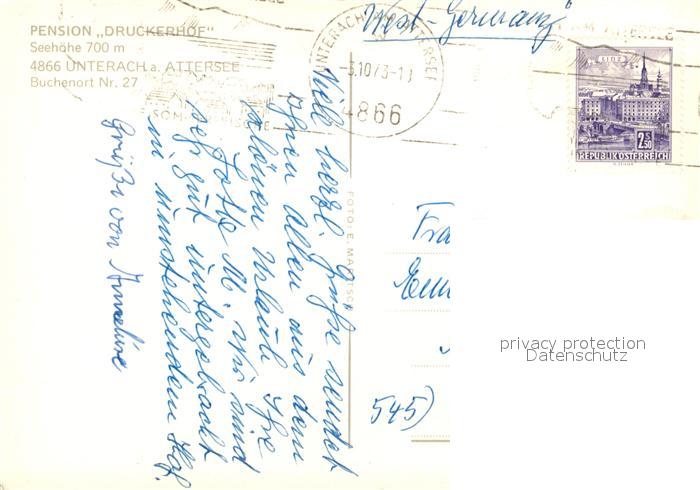 PENSION „DRUCKERHOF"
Seehöhe 700 m
4866 UNTERACH a. ATTERSEE
Buchenort Nr. 27
West-Germany
UNTERACH ATTERSEE
-3.10.73-1
4866
SOMM
LINZ
2.50
REPUBLIK ÖSTERREICH
Viele herzl. Grüße sendet
Ihnen allen aus dem
schönen Urlaub Ihre
Lotte M. Wir sind
sehr gut untergebracht
in umstehendem Hof.
Grüße von
FOTO E. MA
Fra
Em
545)
privacy protection
Datenschutz